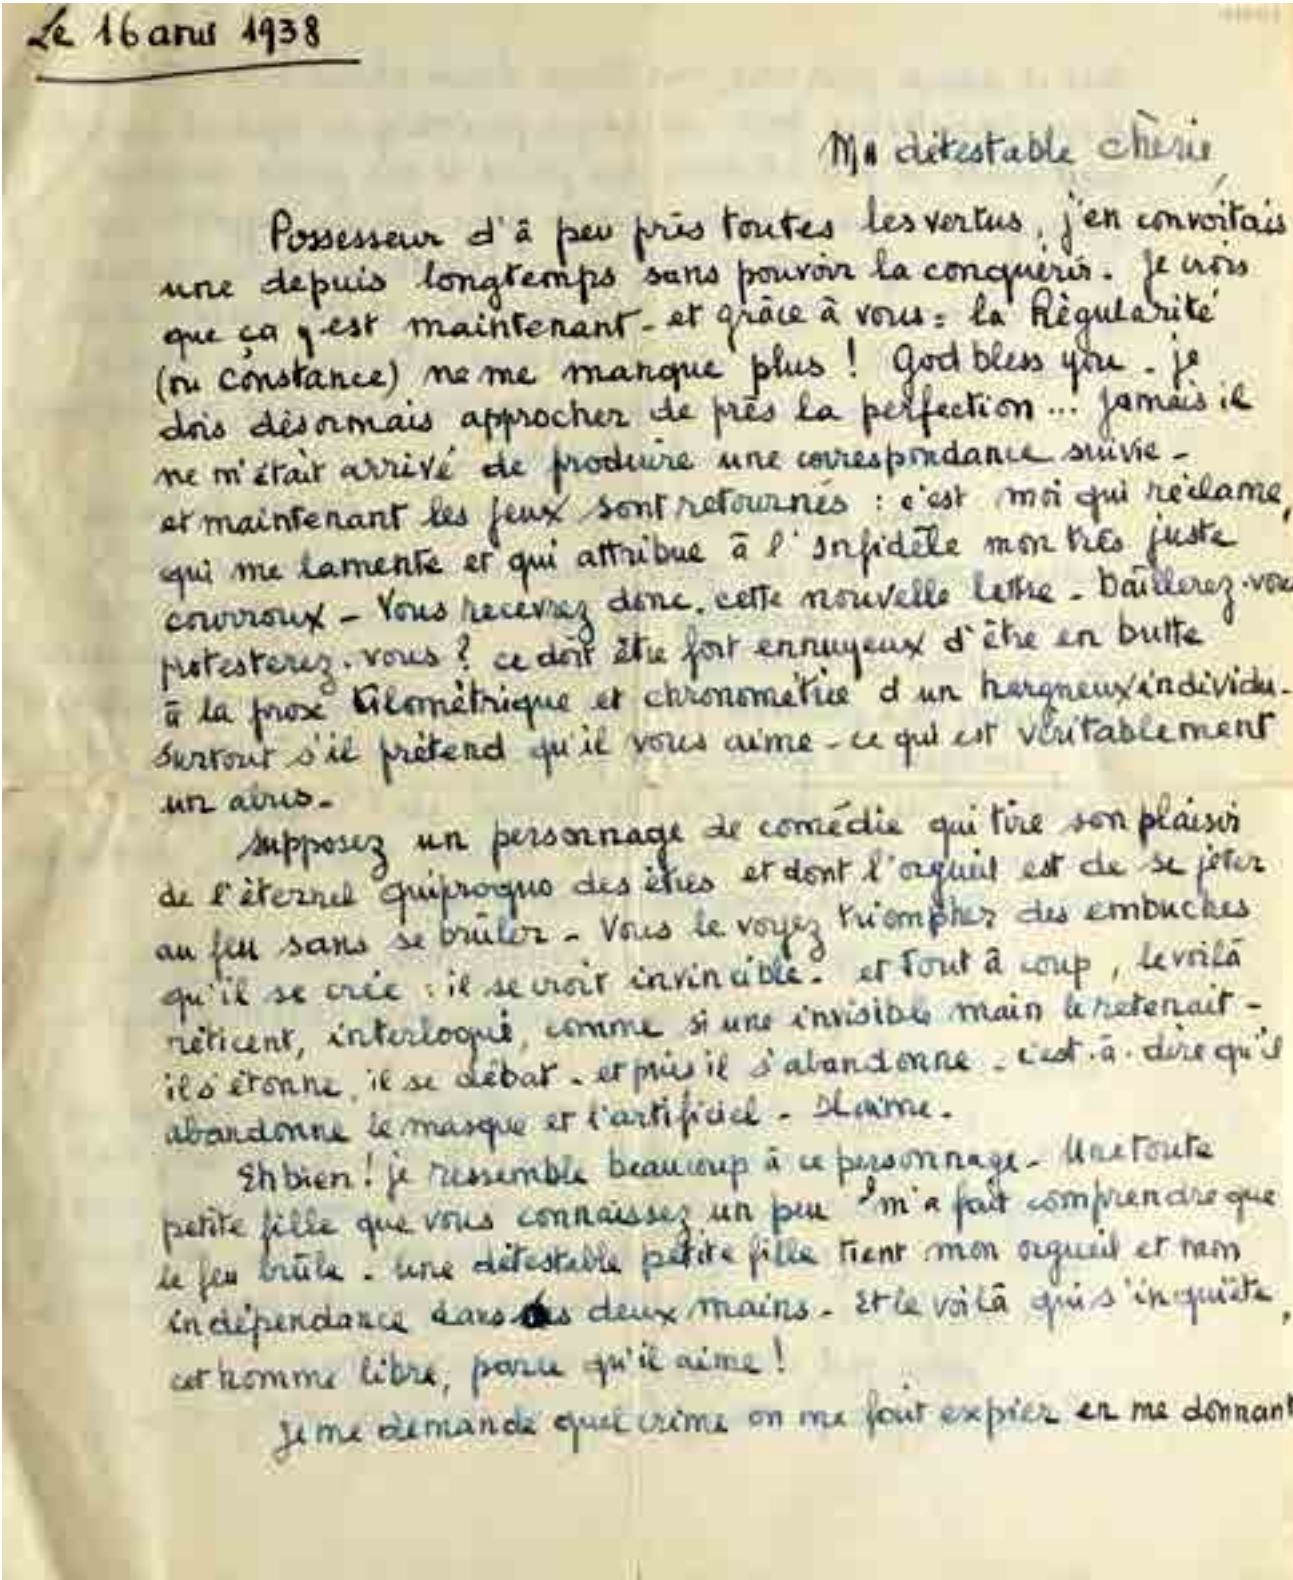 Le 16 avril 1938
Ma détestable chérie,
Possesseur d'à peu près toutes les vertus, j'en convoitais
une depuis longtemps sans pouvoir la conquérir. Je crois
que ça y est maintenant - et grâce à vous : la Régularité
(ou Constance) ne me manque plus ! God bless you - je
dois désormais approcher de près la perfection... Jamais il
ne m'était arrivé de produire une correspondance suivie -
et maintenant les jeux sont retournés : c'est moi qui réclame,
qui me lamente et qui attribue à l'infidèle mon très juste
courroux - Vous recevrez donc cette nouvelle lettre - Bâillerez-vous
protesterez-vous ? ce doit être fort ennuyeux d'être en butte
à la prose kilométrique et chronométrée d'un hargneux individu -
surtout s'il prétend qu'il vous aime - ce qui est véritablement
un abus -
Supposez un personnage de comédie qui tire son plaisir
de l'éternel quiproquo des êtres et dont l'orgueil est de se jeter
au feu sans se brûler - Vous le voyez triompher des embuches
qu'il se crée : il se croit invincible - et tout à coup, le voilà
réticent, interloqué, comme si une invisible main le retenait -
il s'étonne, il se débat - et puis il s'abandonne - c'est-à-dire qu'il
abandonne le masque et l'artificiel - Il aime -
Eh bien ! je ressemble beaucoup à ce personnage - Une toute
petite fille que vous connaissez un peu m'a fait comprendre que
le feu brûle - une détestable petite fille tient mon orgueil et mon
indépendance dans ses deux mains - Et le voilà qui s'inquiète,
cet homme libre, parce qu'il aime !
Je me demande quel crime on me fait expier en me donnant